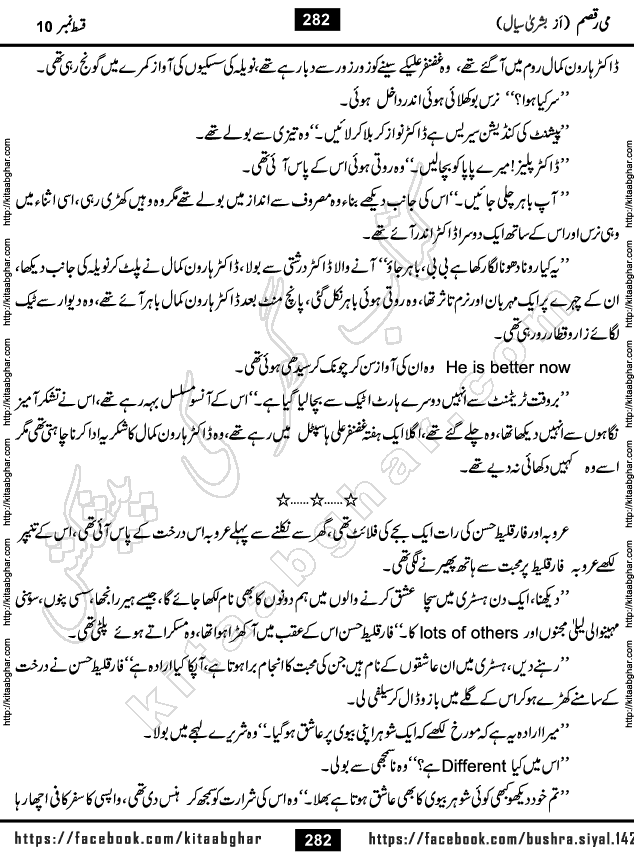 می رقصم (از بشریٰ سیال)
282
قسط نمبر 10
ڈاکٹر ہارون کمال روم میں آ گئے تھے، وہ غضنفر علیکے سینے کو زور زور سے دبا رہے تھے، نویلہ کی سسکیوں کی آواز کمرے میں گونج رہی تھی۔
’’سر کیا ہوا؟‘‘ نرس بوکھلائی ہوئی اندر داخل ہوئی۔
’’پیشنٹ کی کنڈیشن سیریس ہے ڈاکٹر نواز کر بلا کر لائیں۔‘‘ وہ تیزی سے بولے تھے۔
’’ڈاکٹر پلیز! میرے پاپا کو بچا لیں۔‘‘ وہ روتی ہوئی اس کے پاس آئی تھی۔
’’آپ باہر چلی جائیں۔‘‘ اس کی جانب دیکھے بناء وہ مصروف سے انداز میں بولے تھے مگر وہ وہیں کھڑی رہی، اسی اثناء میں
وہی نرس اور اس کے ساتھ ایک دوسرا ڈاکٹر اندر آئے تھے۔
’’یہ کیا رونا دھونا لگا رکھا ہے بی بی، باہر جاؤ‘‘ آنے والا ڈاکٹر درشتی سے بولا، ڈاکٹر ہارون کمال نے پلٹ کر نویلہ کی جانب دیکھا،
ان کے چہرے پر ایک مہربان اور نرم تاثر تھا، وہ روتی ہوئی باہر نکل گئی، پانچ منٹ بعد ڈاکٹر ہارون کمال باہر آئے تھے، وہ دیوار سے ٹیک
لگائے زار و قطار رو رہی تھی۔
He is better now وہ ان کی آواز سن کر چونک کر سیدھی ہوئی تھی۔
’’بروقت ٹریٹمنٹ سے انہیں دوسرے ہارٹ اٹیک سے بچا لیا گیا ہے۔‘‘ اس کے آنسو مسلسل بہہ رہے تھے، اس نے تشکر آمیز
نگاہوں سے انہیں دیکھا تھا، وہ چلے گئے تھے، اگلا ایک ہفتہ غضنفر علی ہاسپٹل میں رہے تھے، وہ ڈاکٹر ہارون کمال کا شکریہ ادا کرنا چاہتی تھی مگر
اسے وہ کہیں دکھائی نہ دیے تھے۔
☆......☆......☆
عروبہ اور فارقلیط حسن کی رات ایک بجے کی فلائٹ تھی، گھر سے نکلنے سے پہلے عروبہ اس درخت کے پاس آئی تھی، اس کے تنے پر
لکھے عروبہ فارقلیط پر محبت سے ہاتھ پھیرنے لگی تھی۔
’’دیکھنا، ایک دن ہسٹری میں سچا عشق کرنے والوں میں ہم دونوں کا بھی نام لکھا جائے گا، جیسے ہیر رانجھا، سسی پنوں، سوہنی
مہینوالی لیلیٰ مجنوں اور lots of others کا۔‘‘ فارقلیط حسن اس کے عقب میں آ کھڑا ہوا تھا، وہ مسکراتے ہوئے پلٹی تھی۔
’’رہنے دیں، ہسٹری میں ان عاشقوں کے نام ہیں جن کی محبت کا انجام برا ہوتا ہے، آپ کا کیا ارادہ ہے‘‘ فارقلیط حسن نے درخت
کے سامنے کھڑے ہو کر اس کے گلے میں بازو ڈال کر سیلفی لی۔
’’میرا ارادہ یہ ہے کہ مورخ لکھے کہ ایک شوہر اپنی بیوی پر عاشق ہو گیا۔‘‘ وہ شریر سے لہجے میں بولا۔
’’اس میں کیا Different ہے؟‘‘ وہ نا سمجھی سے بولی۔
’’تم خود دیکھو کبھی کوئی شوہر بیوی کا بھی عاشق ہوتا ہے بھلا۔‘‘ وہ اس کی شرارت کو سمجھ کر ہنس دی تھی، واپسی کا سفر کافی اچھا رہا
https://facebook.com/kitaabghar
282
https://facebook.com/bushra.siyal.142
http://kitaabghar.com
http://kitaabghar.com
http://kitaabghar.com
http://kitaabghar.com
http://kitaabghar.com
http://kitaabghar.com
http://kitaabghar.com
http://kitaabghar.com
http://kitaabghar.com
http://kitaabghar.com
http://kitaabghar.com
http://kitaabghar.com
کتاب گھر کی پیشکش
kitaabghar.com